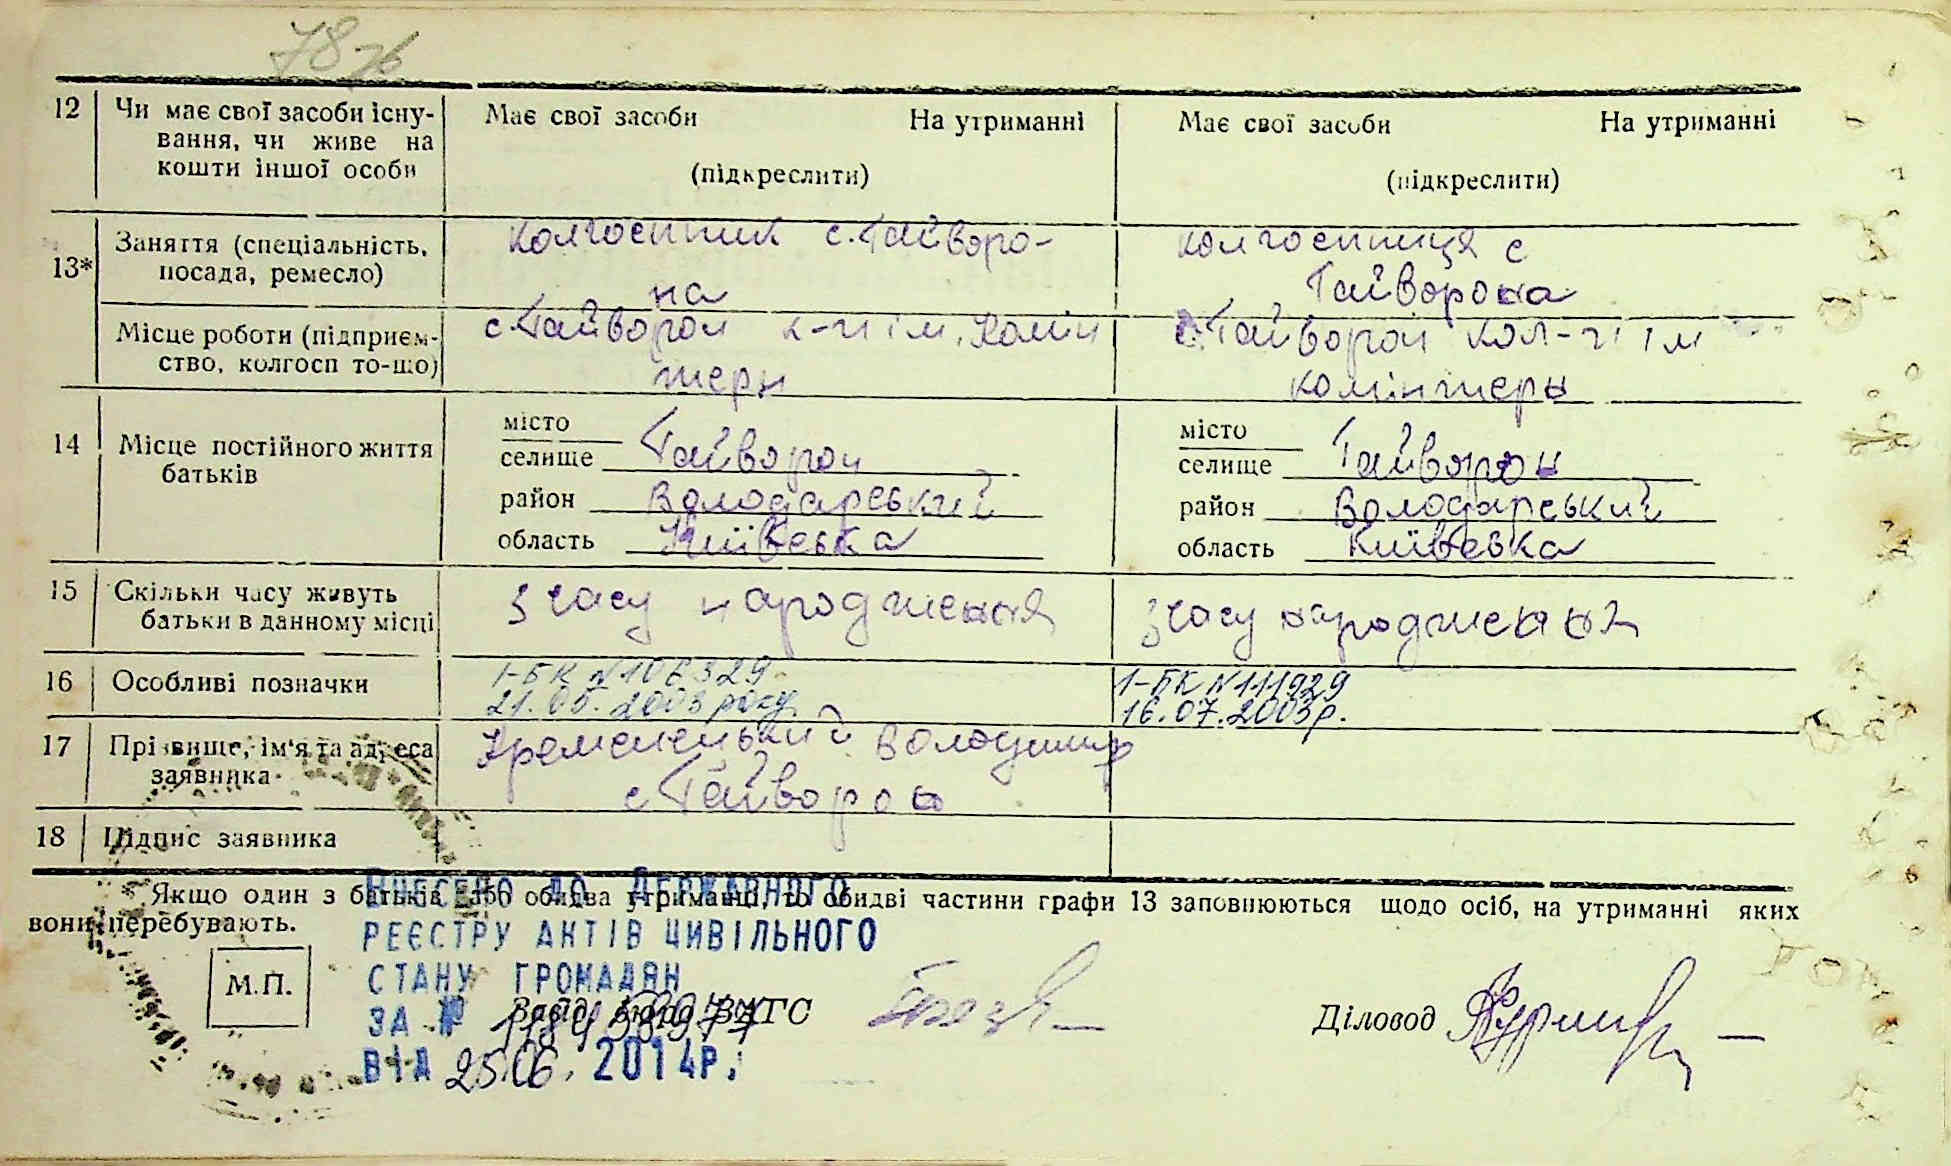 78
12 Чи має свої засоби існу- Має свої засоби На утриманні Має свої засоби На утриманні
вання, чи живе на
кошти іншої особи (підкреслити) (підкреслити)
13* Заняття (спеціальність, колгоспник с. Гайворо- колгоспниця с
посада, ремесло) на Гайворона
Місце роботи (підприєм- с. Гайворон к-п ім. Комін с. Гайворон кол-п ім
ство, колгосп то-що) терн комінтерн
14 Місце постійного життя місто місто
батьків селище Гайворон селище Гайворон
район Володарський район Володарський
область Київська область Київська
15 Скільки часу живуть з часу народження з часу народження
батьки в данному місці
16 Особливі позначки 1-БК N 106329 1-БК N 111929
21.05.2003 року 16.07.2003р.
17 Прізвище, ім'я та адреса Кременецький Володимир
заявника с Гайворон
18 Підпис заявника
Якщо один з батьків або обидва утриманці, то обидві частини графи 13 заповнюються щодо осіб, на утриманні яких
вони перебувають.
ВНЕСЕНО ДО ДЕРЖАВНОГО
РЕЄСТРУ АКТІВ ЦИВІЛЬНОГО
СТАНУ ГРОМАДЯН
ЗА №
ВІД 25.06. 2014р.
М.П. Завід. бюро ВАГС Діловод